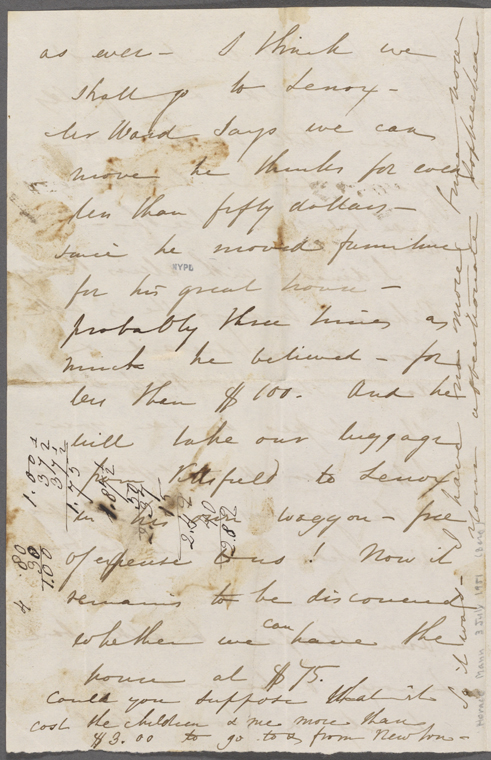 as ever – I think we
shall go to Lenox –
Mr Ward says we can
move he thinks for even
less than fifty dollars –
since he moved furniture
for his great house –
probably three times as
much he believed – for
less than $100. And he
will take our luggage
from Pittsfield to Lenox
in his own waggon – free
of expense to us! Now it
remains to be discovered
whether we can have the
house at $75.
Could you suppose that it
cost the children & me more than
$3.00 to go to &amp; from Newton –
So it was – I have no more time now
Your affectionate Sophiechen
NYPL
Horace Mann 3 July 1851